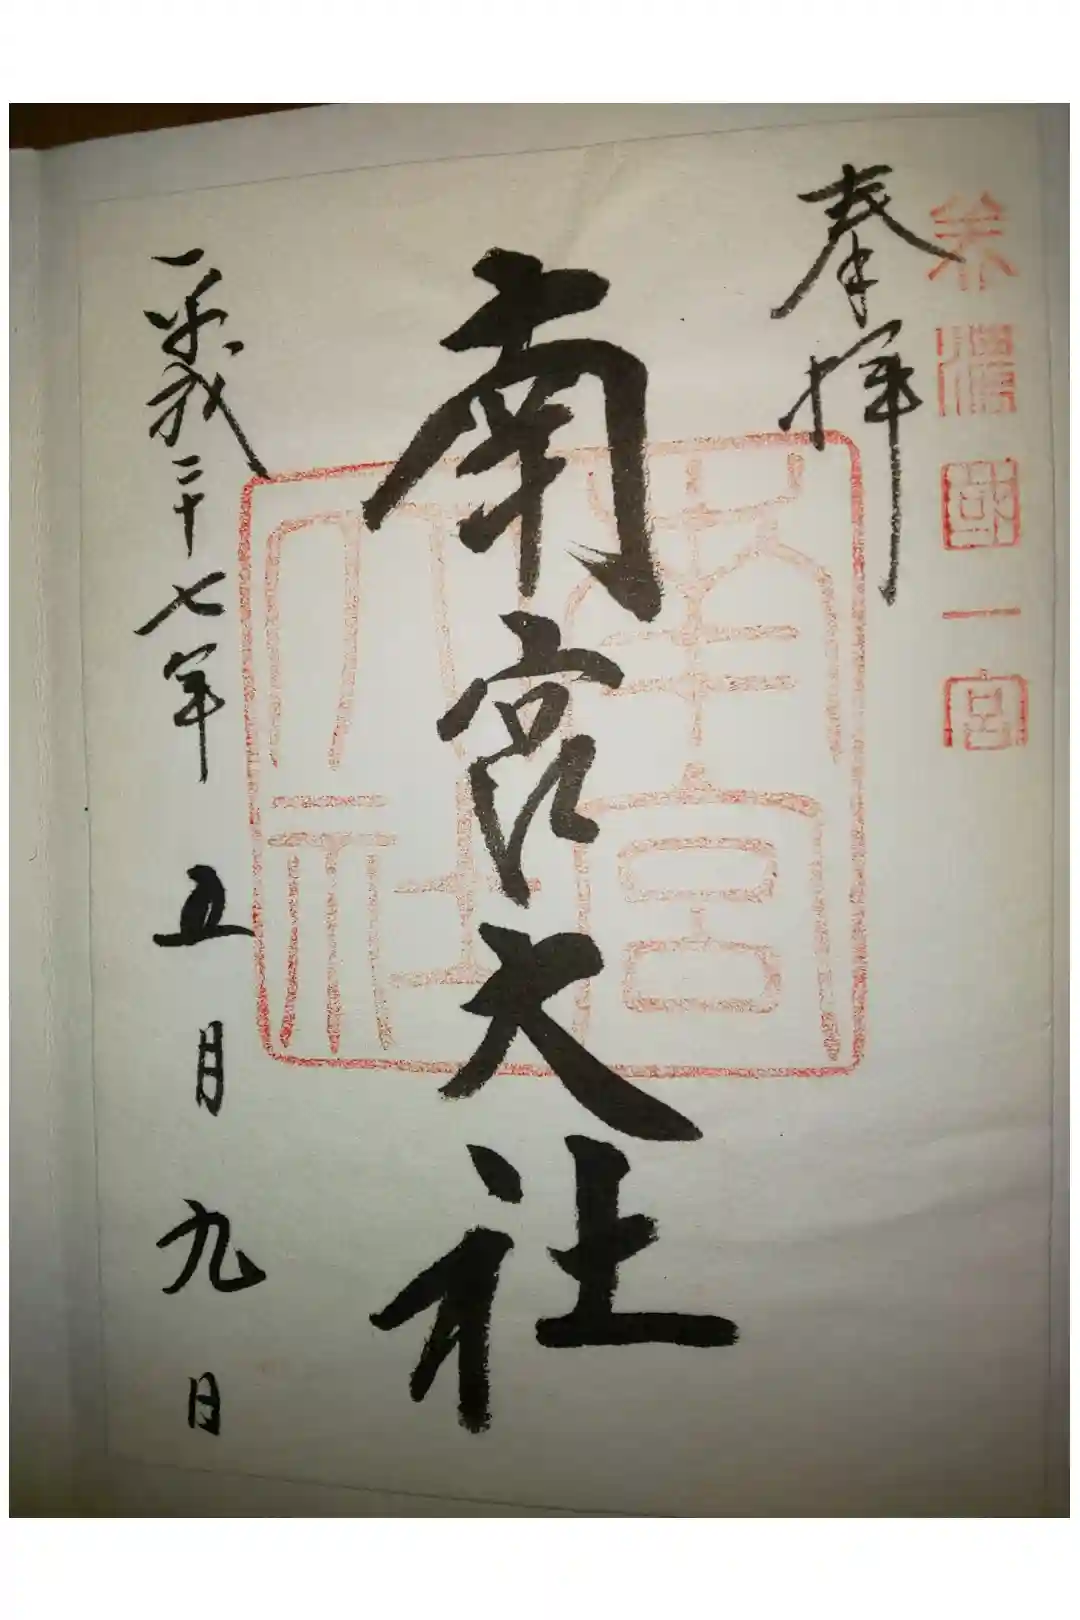 美濃國一宮
奉拝
南宮大社
南宮大社
平成二十七年五月九日